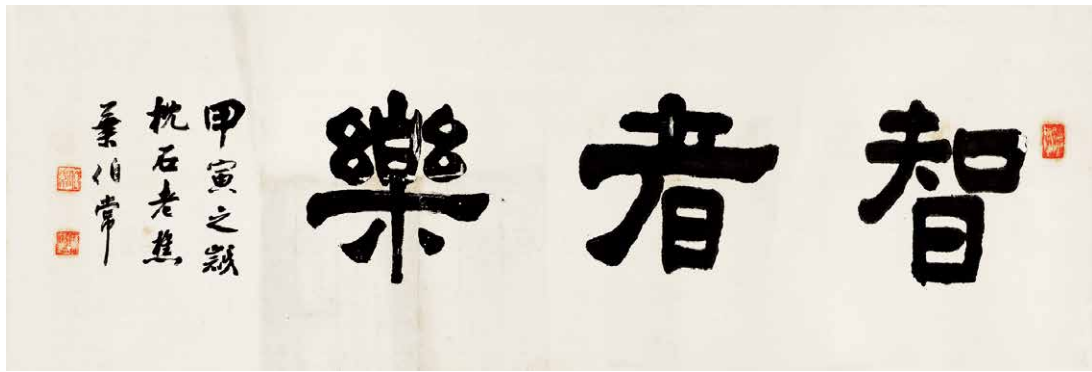 智者樂
甲寅之歲
枕石老樵
葉伯常